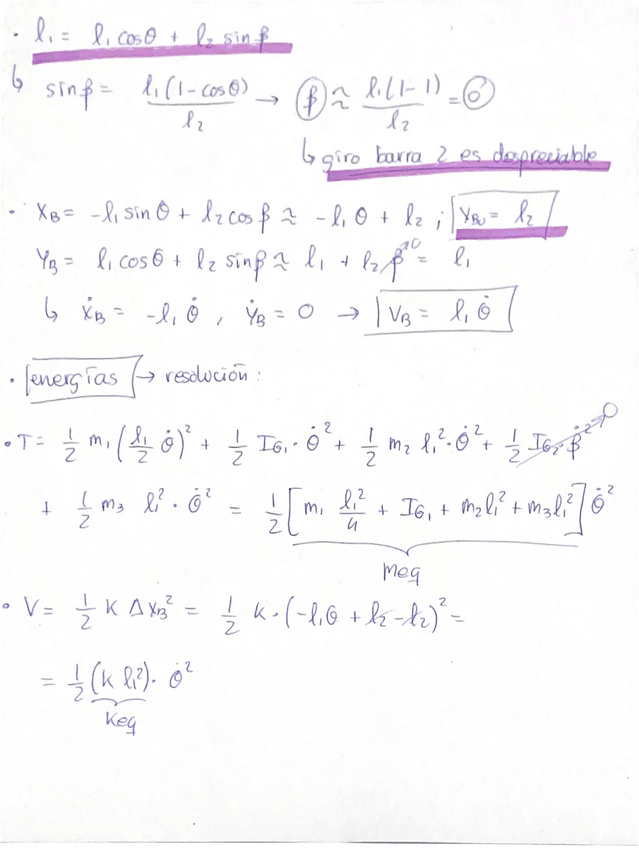 · l₁ = l₁ cosθ + l₂ sinβ
↳ sinβ = l₁(1-cosθ)/l₂ → β ≈ l₁(1-1)/l₂ = 0
↳ giro barra 2 es despreciable
· XB = -l₁ sinθ + l₂ cosβ ≈ -l₁θ + l₂ ; XB₀ = l₂
YB = l₁ cosθ + l₂ sinβ ≈ l₁ + l₂β→0 = l₁
↳ ẊB = -l₁θ̇ , ẎB = 0 → VB = l₁θ̇
· energías → resolución:
· T = 1/2 m₁(l₁/2 θ̇)² + 1/2 IG₁·θ̇² + 1/2 m₂ l₁²·θ̇² + 1/2 IG₂·β̇²→0
+ 1/2 m₃ l₁²·θ̇² = 1/2 [m₁ l₁²/4 + IG₁ + m₂l₁² + m₃l₁²] θ̇²
meq
· V = 1/2 K ΔXB² = 1/2 K·(-l₁θ + l₂ - l₂)² =
= 1/2 (K l₁²)·θ̇²
Keq